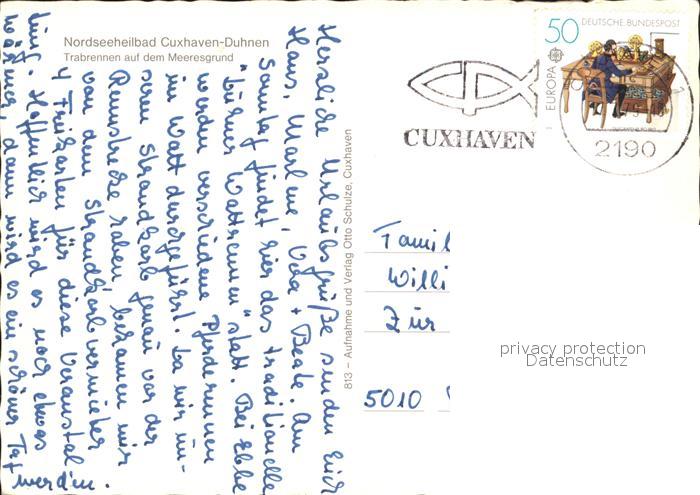 Nordseeheilbad Cuxhaven-Duhnen
Trabrennen auf dem Meeresgrund
813 – Aufnahme und Verlag Otto Schulze, Cuxhaven
50 DEUTSCHE BUNDESPOST
EUROPA
CUXHAVEN
2190
Herzliche Urlaubsgrüße senden Euch
Hans, Marlene, + Beate. Am
Sonntag findet hier das traditionelle
"Duhner Wattrennen" statt. Bei Ebbe
werden verschiedene Pferderennen
im Watt durchgeführt. Da wir un-
seren Strandkorb genau vor der
Rennstrecke haben, bekamen wir
von dem Strandkorbvermieter
4 Freikarten für diese Veranstal-
tung. Hoffentlich wird es noch etwas
wärmer, dann wird es ein schöner Tag
werden.
Famil
Willi
Zür
5010
privacy protection
Datenschutz